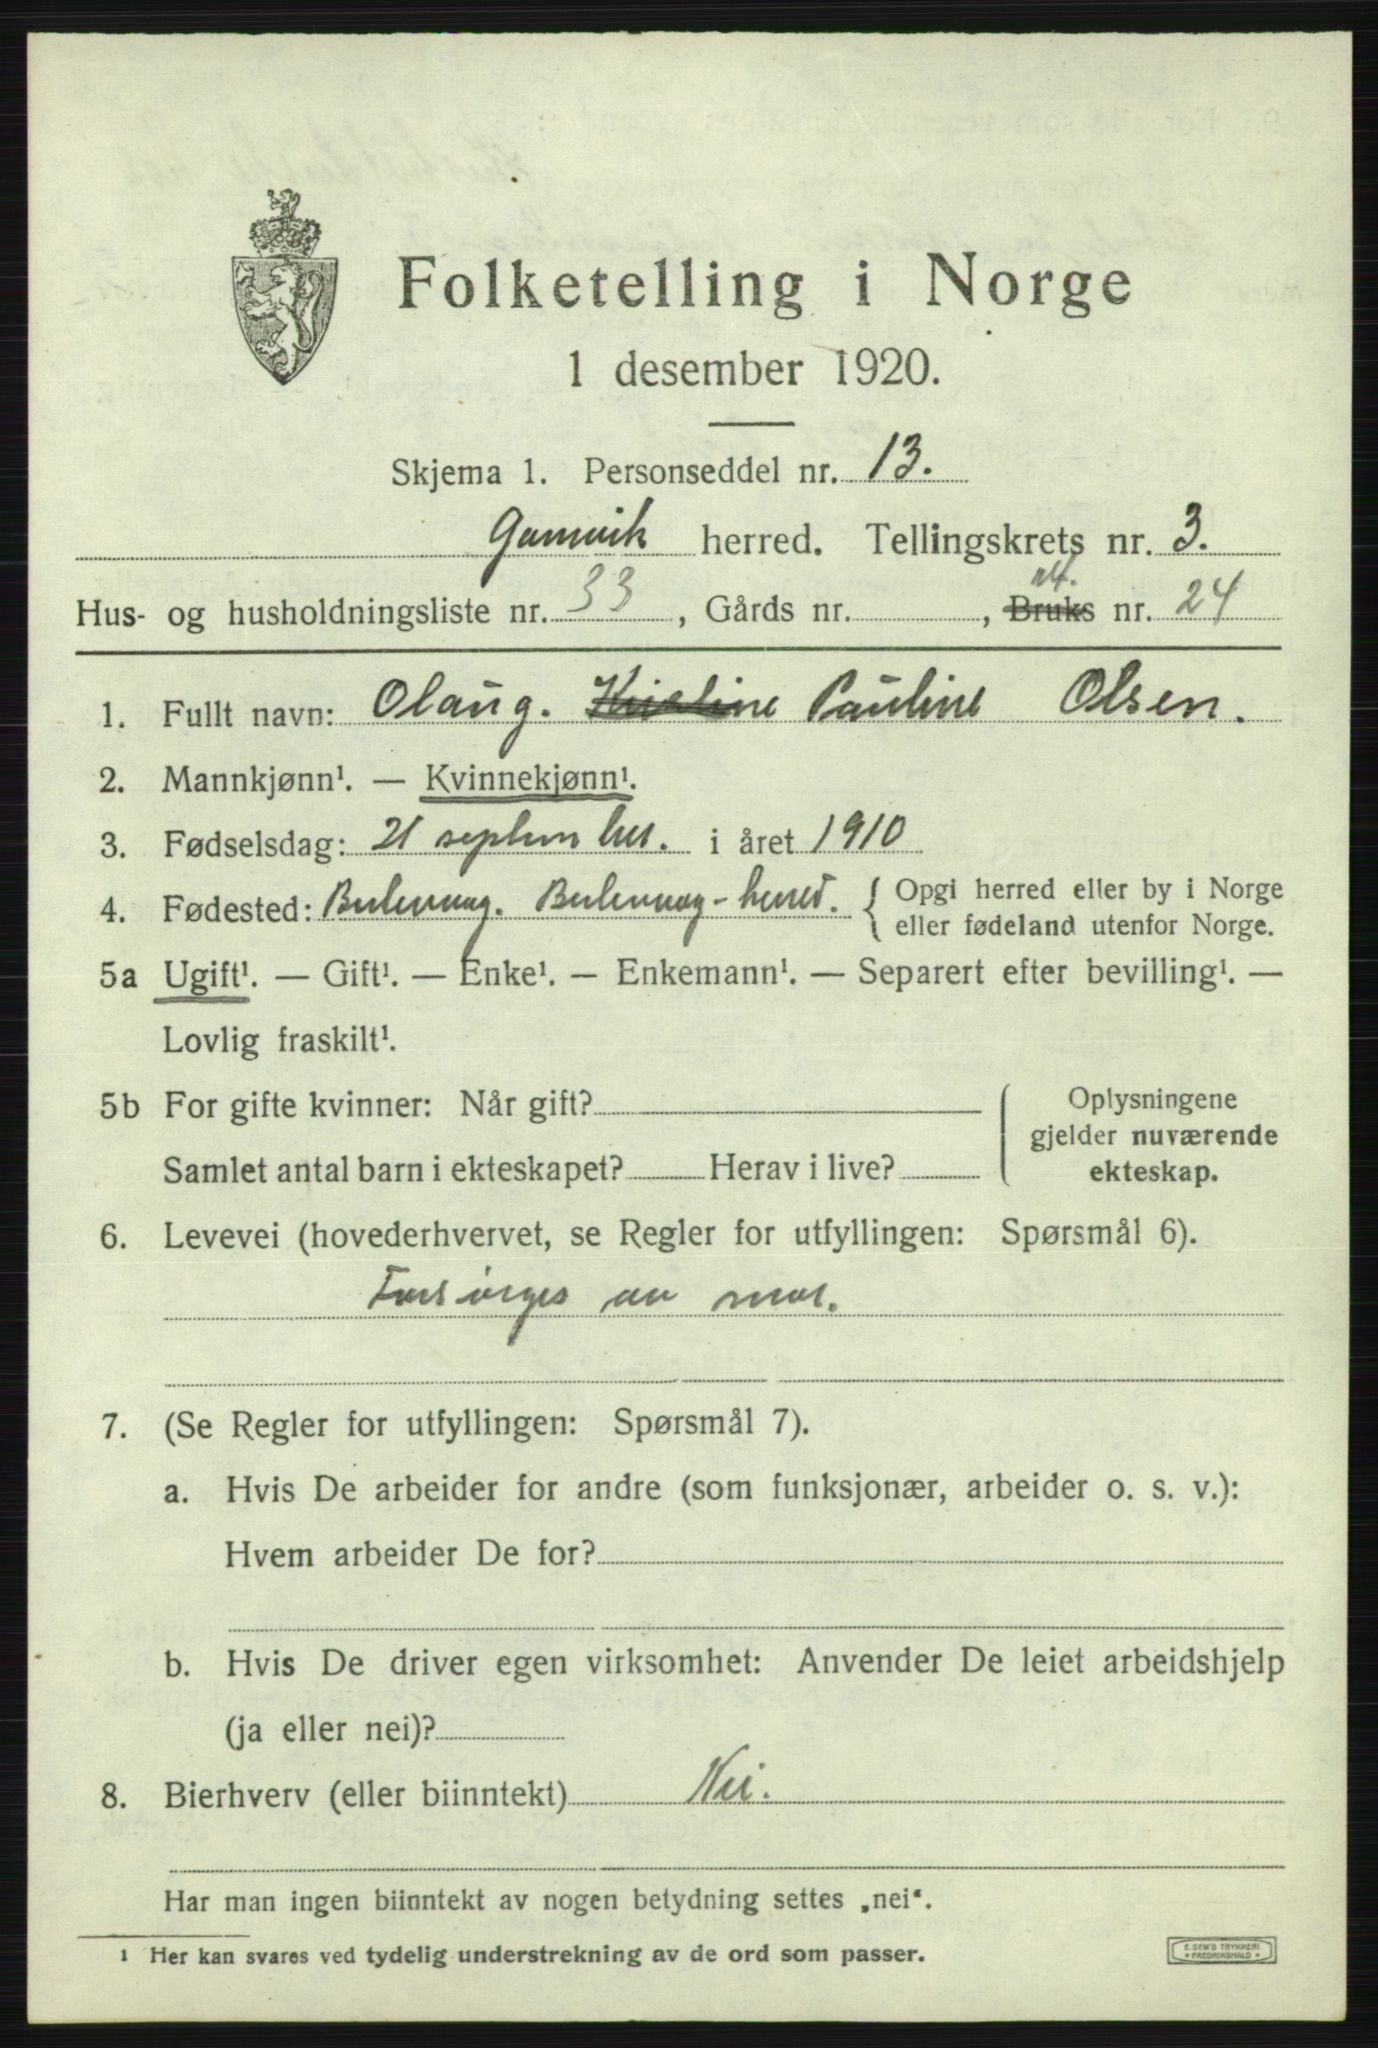 Folketelling i Norge
1 desember 1920.
Skjema 1. Personseddel nr. 13.
Gamvik herred. Tellingskrets nr. 3.
Hus- og husholdningsliste nr. 33, Gårds nr. , Bruks nr. 24
1. Fullt navn: Olaug. Kristine Pauline Olsen.
2. Mannkjønn¹. — Kvinnekjønn¹.
3. Fødselsdag: 21 september. i året 1910
4. Fødested: Berlevaag. Berlevaag-herred. { Opgi herred eller by i Norge
eller fødeland utenfor Norge.
5a Ugift¹. — Gift¹. — Enke¹. — Enkemann¹. — Separert efter bevilling¹. —
Lovlig fraskilt¹.
5b For gifte kvinner: Når gift?
Samlet antal barn i ekteskapet? Herav i live?
Oplysningene
gjelder nuværende
ekteskap.
6. Levevei (hovederhvervet, se Regler for utfyllingen: Spørsmål 6).
Forsørges av mor.
7. (Se Regler for utfyllingen: Spørsmål 7).
a. Hvis De arbeider for andre (som funksjonær, arbeider o. s. v.):
Hvem arbeider De for?
b. Hvis De driver egen virksomhet: Anvender De leiet arbeidshjelp
(ja eller nei)?
8. Bierhverv (eller biinntekt) Nei.
Har man ingen biinntekt av nogen betydning settes „nei“.
¹ Her kan svares ved tydelig understrekning av de ord som passer.
E. SEM'S TRYKKERI
• FREDRIKSHALD •